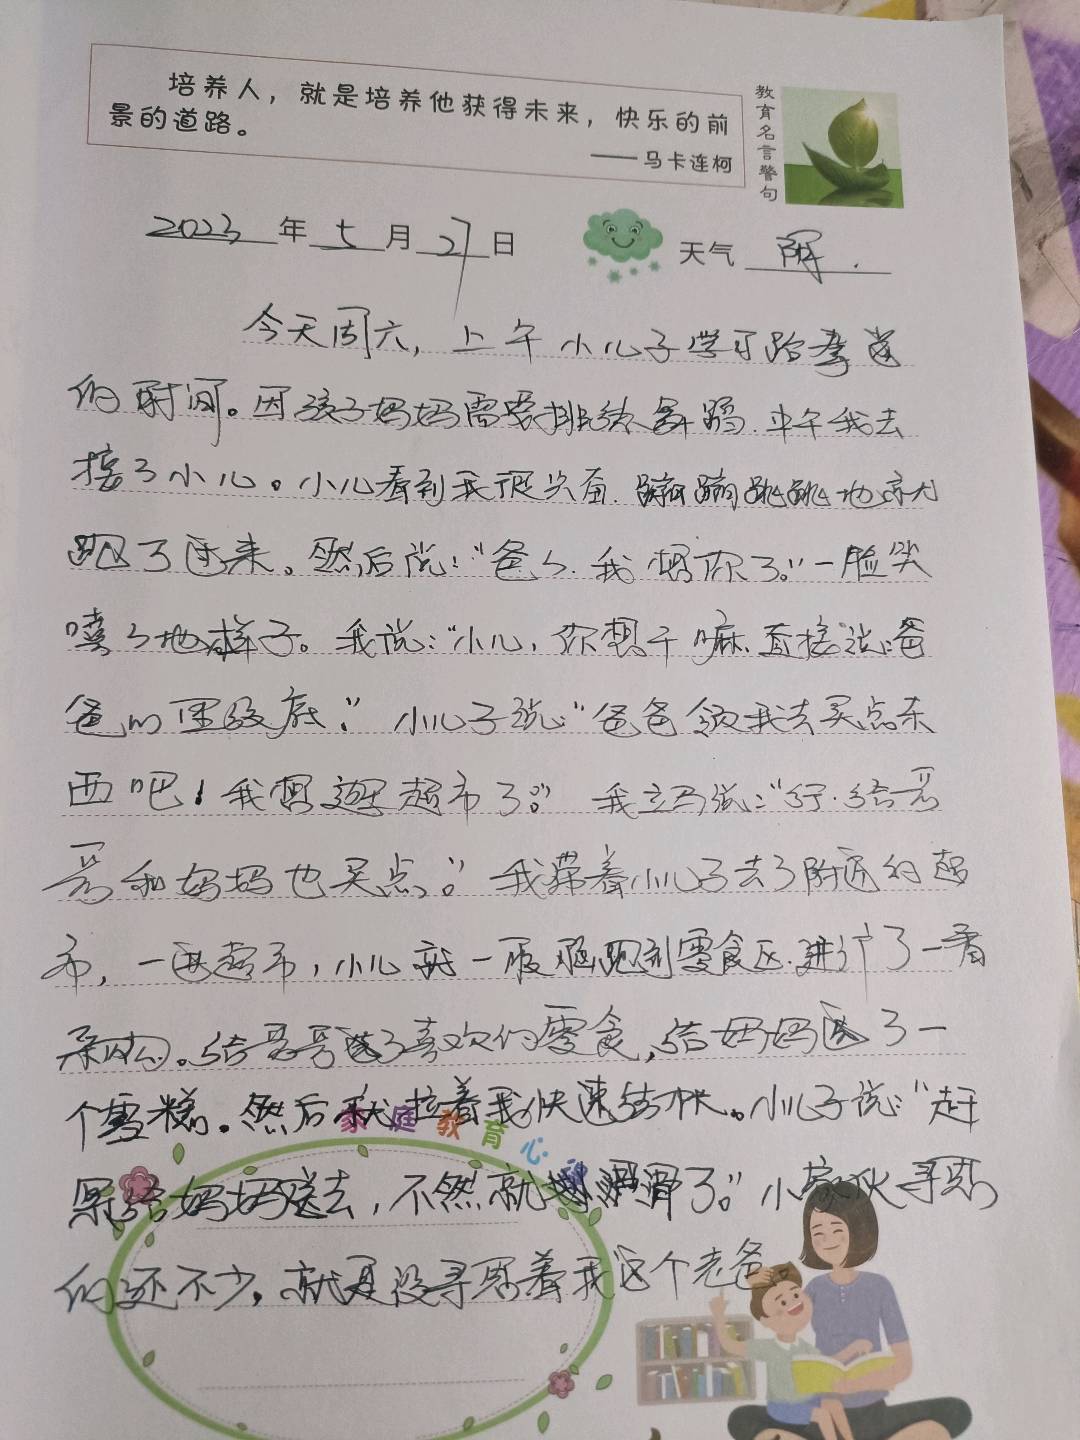 培养人，就是培养他获得未来，快乐的前
景的道路。
——马卡连柯
教育名言警句
2023年5月27日
天气 阴.
今天周六，上午小儿子学习跆拳道
的时间。因孩子妈妈需要排练舞蹈.中午我去
接了小儿。小儿看到我很兴奋.蹦蹦跳跳地
跑了过来。然后说：“爸々.我想你了。”一脸笑
嘻々地样子。我说：“小儿，你想干嘛.直接说.爸
爸心里没底。”小儿子说“爸爸领我去买点东
西吧！我想逛超市了。”我立马说：“行.给哥
哥和妈妈也买点。”我带着小儿子去了附近的超
市，一进超市，小儿就一股脑跑到零食区.进行了一番
采购。给哥哥选了喜欢的零食，给妈妈选了一
个雪糕。然后拉着我快速结帐。小儿子说：“赶
紧给妈妈送去，不然就化了。”小家伙寻思
的还不少，就是没寻思着我这个老爸
家庭教育心